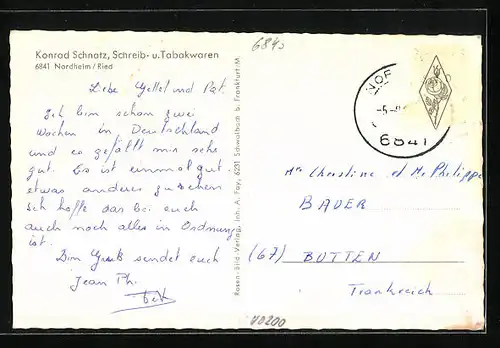 Konrad Schnatz, Schreib- u. Tabakwaren
6841 Nordheim / Ried
Liebe Yettel und Pat.
Ich bin schon zwei
Wochen in Deutschland
und es gefällt mir sehr
gut. Es ist einmal gut
etwas anderes zu sehen
Ich hoffe das bei euch
auch noch alles in Ordnung
ist.
Bin Gruß sendet euch
Jean Ph.
Rosen-Bild-Verlag, Inh. A. Fay, 6231 Schwalbach b. Frankfurt/M.
6840
NOR
6841
Mme Christine et Mr Philippe
BAUER
(67) BUTTEN
Frankreich
V0200